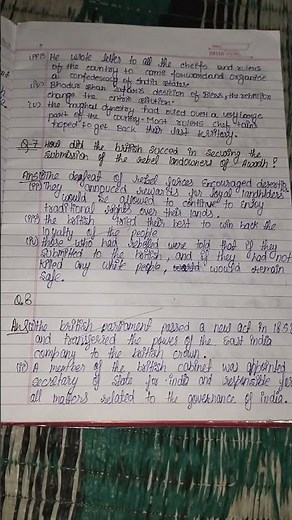 (iii) He wrote letter to all the cheifs and rulers
of the country to come forward and organize
a confederacy of India states.
(iv) Bhadur shah zafar's decision of Bless, the rebellion
change the entire situation.
(v) the mughal dynasty had ruled over a very large
part of the country. Most rulers chief tains
hoped to get back their lost territory.
Q.7 How did the british succeed in securing the
submission of the rebel landowners of Awadh?
Ans (i) The deafeat of rebel forces encouraged desertion
(ii) They announced rewards for loyal landholders
would be allowed to continue to enjoy
traditional rights over their lands.
(iii) the british tried their best to win back the
loyalty of the people
(iv) those who had rebelled were told that if they
submitted to the british, and if they had not
killed any white people, would remain
safe.
Q.8
Ans (i) The british parliament passed a new act in 185
and transferred the powers of the East india
company to the british crown.
(ii) A member of the british cabinet was appointed
secretary of State for india and responsible for
all matters related to the governance of india.